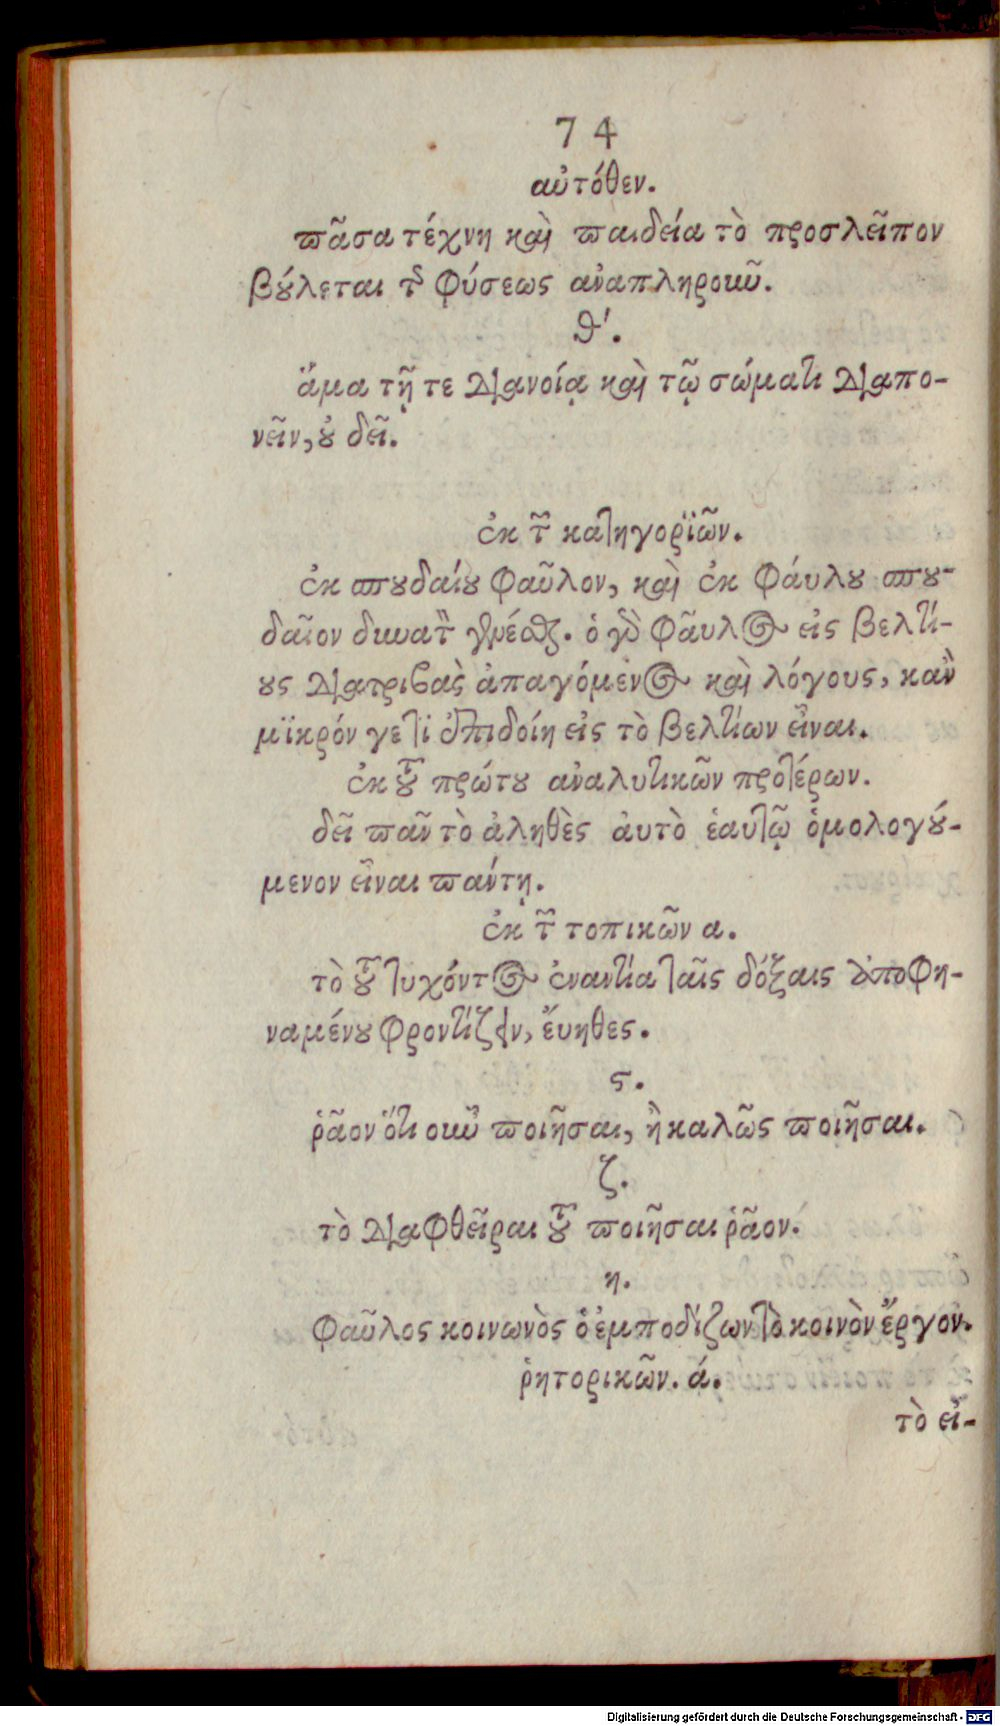 74
αὐτόθεν.
πᾶσα τέχνη καὶ παιδεία τὸ προσλεῖπον
βούλεται τῆς φύσεως ἀναπληροῦν.
θ'.
ἅμα τῇ τε διανοίᾳ καὶ τῷ σώματι διαπο-
νεῖν, οὐ δεῖ.
ἐκ τῶν κατηγοριῶν.
ἐκ σπουδαίου φαῦλον, καὶ ἐκ φάυλου σπου-
δαῖον δυνατὸν γενέσθαι. ὁ γὰρ φᾶυλος εἰς βελτί-
ους διατριβὰς ἀπαγόμενος καὶ λόγους, κἂν
μϊκρόν γέ τι ἐπιδοίη εἰς τὸ βελτίων εἶναι.
ἐκ τοῦ πρώτου ἀναλυτικῶν προτέρων.
δεῖ πᾶν τὸ ἀληθὲς ἀυτὸ ἑαυτῷ ὁμολογού-
μενον εἶναι πάντῃ.
ἐκ τῶν τοπικῶν α.
τὸ τοῦ τυχόντος ἐναντία ταῖς δόξαις ἀποφη-
ναμένου φροντίζειν, ἔυηθες.
ϛ.
ῥᾶον ὁτιοῦν ποιῆσαι, ἢ καλῶς ποιῆσαι.
ζ.
τὸ διαφθεῖραι τοῦ ποιῆσαι ῥᾶον.
η.
φαῦλος κοινωνὸς ὁ ἐμποδίζων τὸ κοινὸν ἔργον.
ῥητορικῶν. ά.
τὸ εἰ-
Digitalisierung gefördert durch die Deutsche Forschungsgemeinschaft - DFG